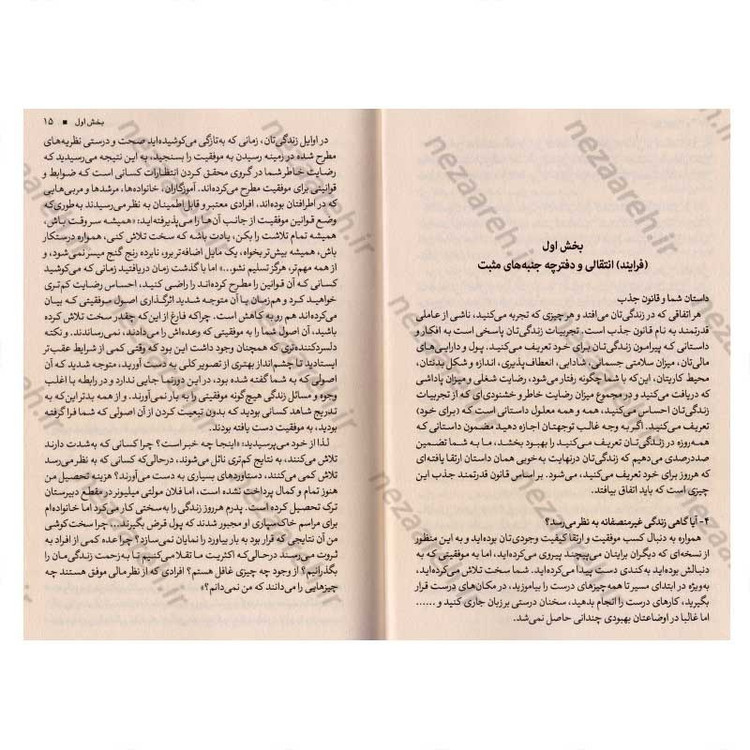 بخش اول
(فرایند) انتقالی و دفترچه جنبه‌های مثبت
داستان شما و قانون جذب
هر اتفاقی که در زندگی‌تان می‌افتد و هر چیزی که تجربه می‌کنید، ناشی از عاملی
قدرتمند به نام قانون جذب است. تجربیات زندگی‌تان پاسخی است به افکار و
داستانی که پیرامون زندگی‌تان برای خود تعریف می‌کنید. پول و دارایی‌های
مالی‌تان، میزان سلامتی جسمانی، شادابی، انعطاف‌پذیری، اندازه و شکل بدنتان،
محیط کاریتان، این‌که با شما چگونه رفتار می‌شود، رضایت شغلی و میزان پاداشی
که دریافت می‌کنید و در مجموع میزان رضایت خاطر و خشنودی‌ای که از تجربیات
زندگی‌تان احساس می‌کنید، همه و همه معلول داستانی است که (برای خود)
تعریف می‌کنید. اگر به وجه غالب توجهتان اجازه دهید مضمون داستانی که
همه‌روزه در زندگی‌تان تعریف می‌کنید را بهبود بخشد، ما به شما تضمین
صددرصدی می‌دهیم که زندگی‌تان درنهایت به‌خوبی همان داستان ارتقا یافته‌ای
که هرروز برای خود تعریف می‌کنید، می‌شود. بر اساس قانون قدرتمند جذب این
چیزی است که باید اتفاق بیافتد.
۴- آیا گاهی زندگی غیرمنصفانه به نظر می‌رسد؟
همواره به دنبال کسب موفقیت و ارتقا کیفیت وجودی‌تان بوده‌اید و به این منظور
از نسخه‌ای که دیگران برایتان می‌پیچند پیروی می‌کرده‌اید، اما به موفقیتی که به
دنبالش بوده‌اید به‌کندی دست پیدا می‌کرده‌اید. شما سخت تلاش می‌کرده‌اید،
به‌ویژه در ابتدای مسیر تا همه‌چیزهای درست را بیاموزید، در مکان‌های درست قرار
بگیرید، کارهای درست را انجام بدهید، سخنان درستی بر زبان جاری کنید و ......
اما غالبا در اوضاعتان بهبودی چندانی حاصل نمی‌شد.
بخش اول ■ ۱۵
در اوایل زندگی‌تان، زمانی که به‌تازگی می‌کوشیده‌اید صحت و درستی نظریه‌های
مطرح شده در زمینه رسیدن به موفقیت را بسنجید، به این نتیجه می‌رسیدید که
رضایت خاطر شما در گروی محقق کردن انتظارات کسانی است که ضوابط و
قوانینی برای موفقیت مطرح می‌کرده‌اند. آموزگاران، خانواده‌ها، مرشدها و مربی‌هایی
که در اطرافتان بوده‌اند، افرادی معتبر و قابل‌اطمینان به نظر می‌رسیدند به‌طوری‌که
وضع قوانین موفقیت از جانب آن‌ها را می‌پذیرفته‌اید: «همیشه سروقت باش،
همیشه تمام تلاشت را بکن، یادت باشه که سخت تلاش کنی، همواره درستکار
باش، همیشه بیش‌تر بخواه، یک مایل اضافه‌تر برو، نابرده رنج گنج میسر نمی‌شود، و
از همه مهم‌تر، هرگز تسلیم نشو...» اما با گذشت زمان دریافتید زمانی که می‌کوشید
کسانی که آن قوانین را مطرح کرده‌اند را راضی کنید، احساس رضایت کم‌تری
خواهید کرد و هم‌زمان با آن متوجه شدید اثرگذاری اصول موفقیتی که بیان
می‌کرده‌اند هم رو به کاهش است. چراکه فارغ از این که چقدر سخت تلاش کرده
باشید، آن اصول شما را به موفقیتی که وعده‌اش را می‌دادند، نمی‌رساندند. و نکته
دلسردکننده‌تری که همچنان وجود داشت این بود که وقتی کمی از شرایط عقب‌تر
ایستادید تا چشم‌انداز بهتری از تصویر کلی به دست آورید، متوجه شدید که آن
اصولی که به شما گفته شده بود، در این دورنما جایی ندارد و در رابطه با اغلب
وجوه و مسائل زندگی هیچ‌گونه موفقیتی را به بار نمی‌آورند. و از همه بدتر این‌که به
تدریج شاهد کسانی بودید که بدون تبعیت کردن از آن اصولی که شما فرا گرفته
بودید، به موفقیت دست یافته بودند.
لذا از خود می‌پرسیدید: «اینجا چه خبر است؟ چرا کسانی که به‌شدت دارند
تلاش می‌کنند، به نتایج کم‌تری نائل می‌شوند، درحالی‌که کسانی که به نظر می‌رسد
تلاش کمی می‌کنند، دستاوردهای بسیاری به دست می‌آورند؟ هزینه تحصیل من
هنوز تمام و کمال پرداخت نشده است، اما فلان مولتی میلیونر در مقطع دبیرستان
ترک تحصیل کرده است. پدرم هرروز زندگی را به‌سختی کار می‌کرد اما خانواده‌ام
برای مراسم خاک‌سپاری او مجبور شدند که پول قرض بگیرند... چرا سخت‌کوشی
من آن نتایجی که قرار بود به بار بیاورد را نمایان نمی‌سازد؟ چرا عده کمی از افراد به
ثروت می‌رسند درحالی‌که اکثریت ما تقلا می‌کنیم تا به‌زحمت زندگی‌مان را
بگذرانیم؟ از وجود چه چیزی غافل هستم؟ افرادی که از نظر مالی موفق هستند چه
چیزهایی را می‌دانند که من نمی‌دانم؟»
nezaareh.ir